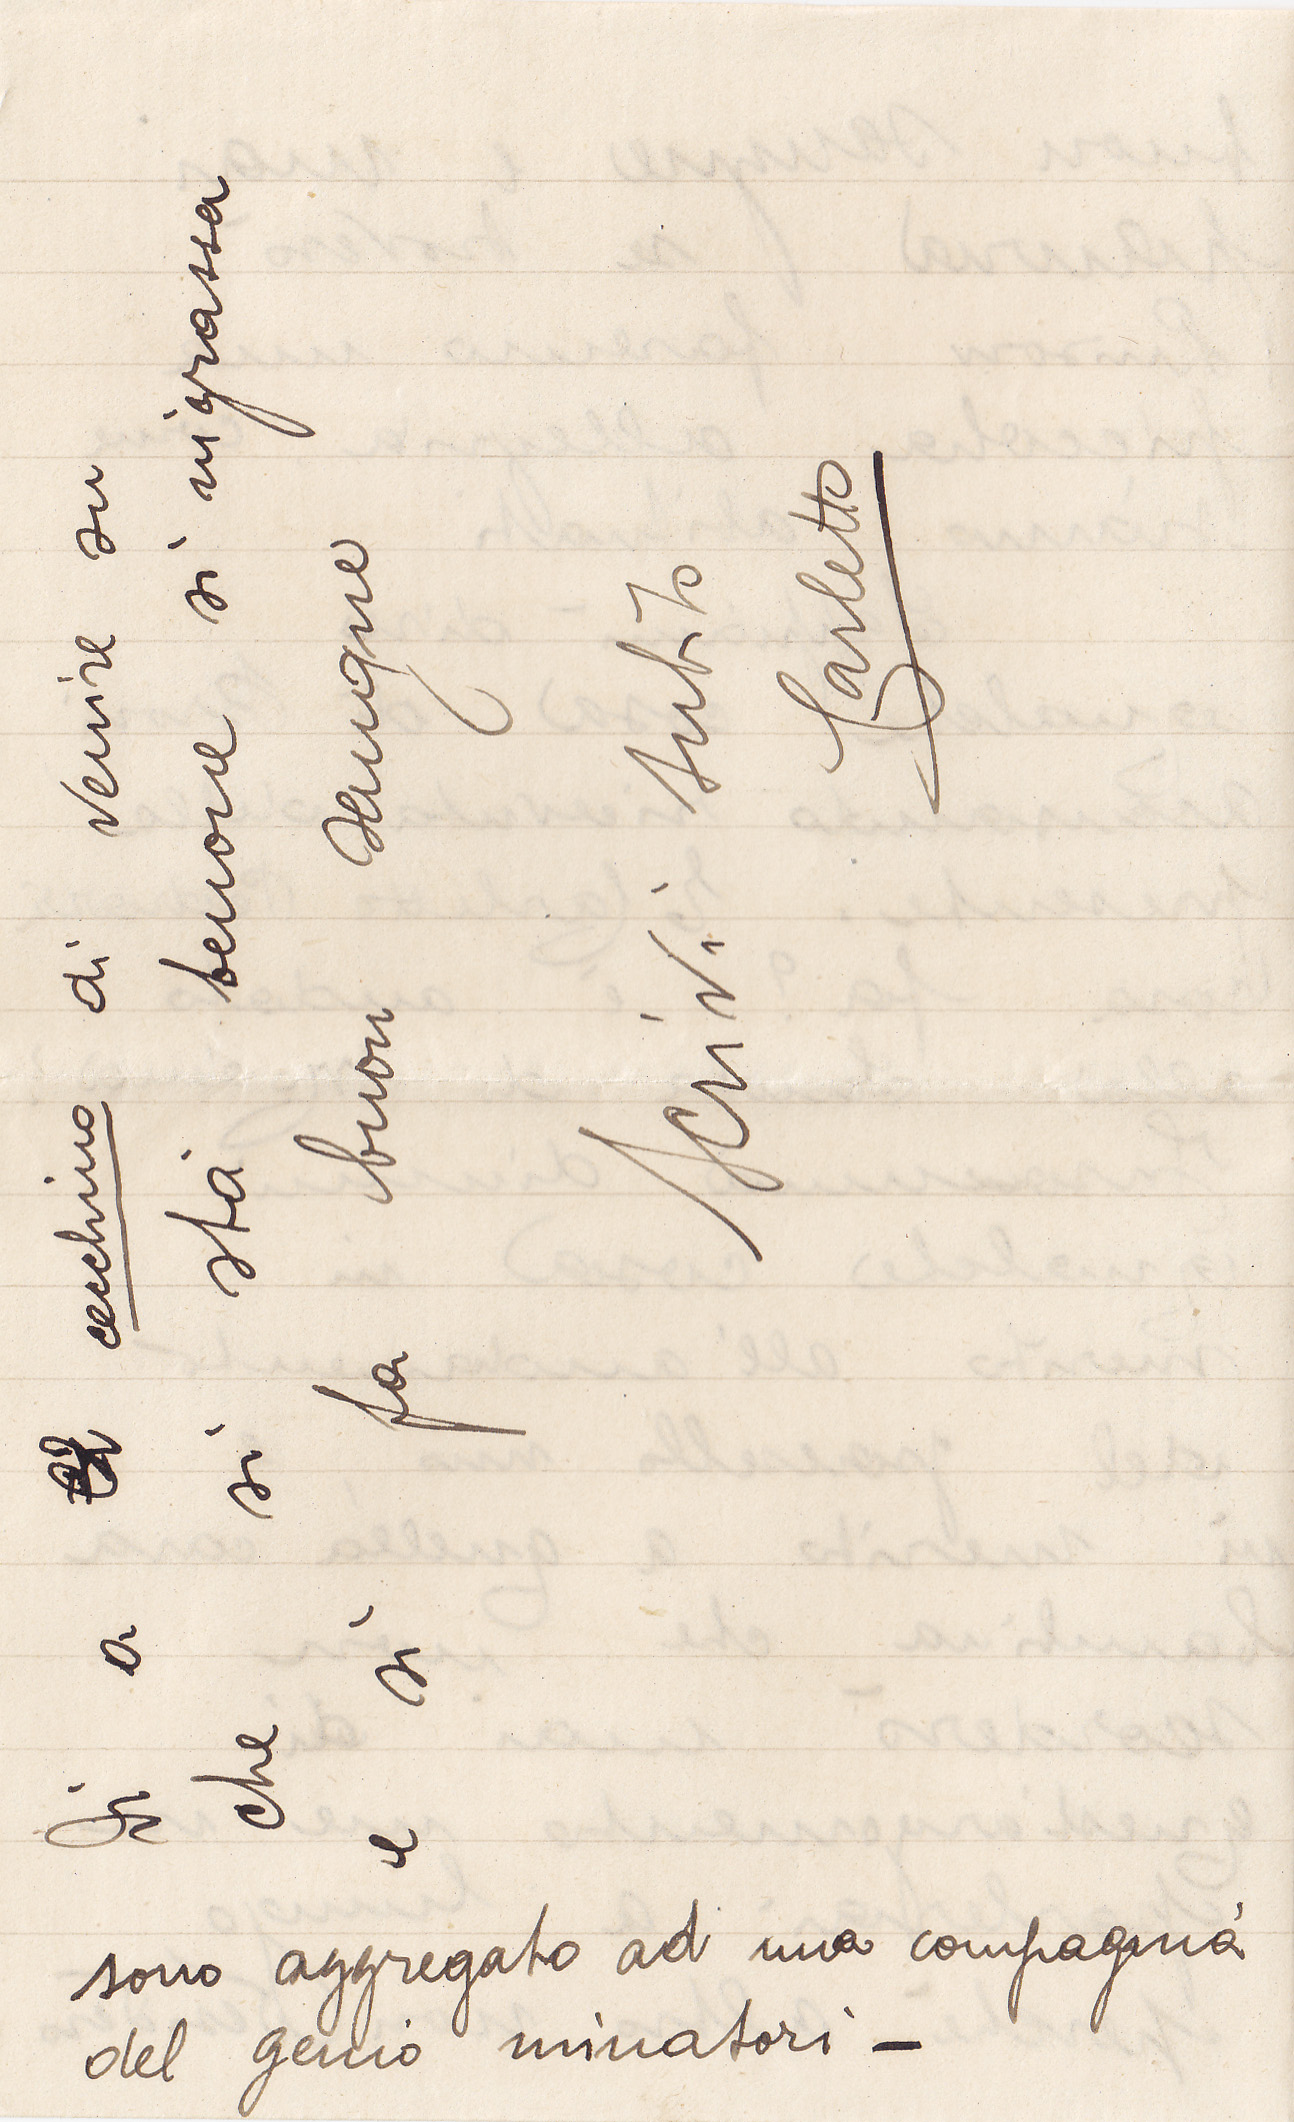 Di a cecchino di venire su
che si stá benone si ingrassa
e si fa buon sangue
Scrivi subito
Carletto
sono aggregato ad una compagnia
del genio minatori –